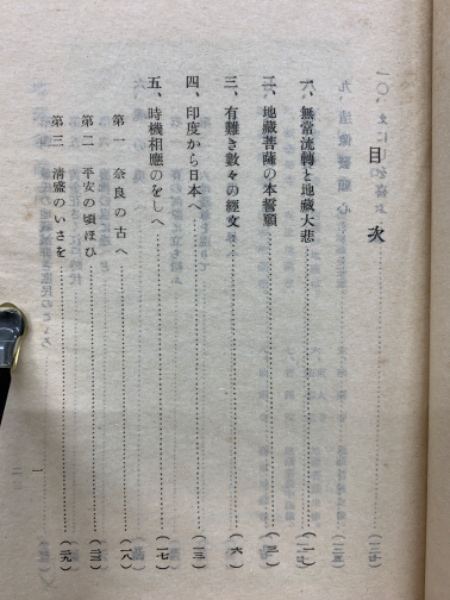 目次
一、無常流轉と地藏大悲……(一)
二、地藏菩薩の本誓願……(三)
三、有難き數々の經文……(六)
四、印度から日本へ……(一三)
五、時機相應のをしへ……(一七)
第一 奈良の古へ……(一八)
第二 平安の頃ほひ……(二三)
第三 淸盛のいさを……(二九)
一